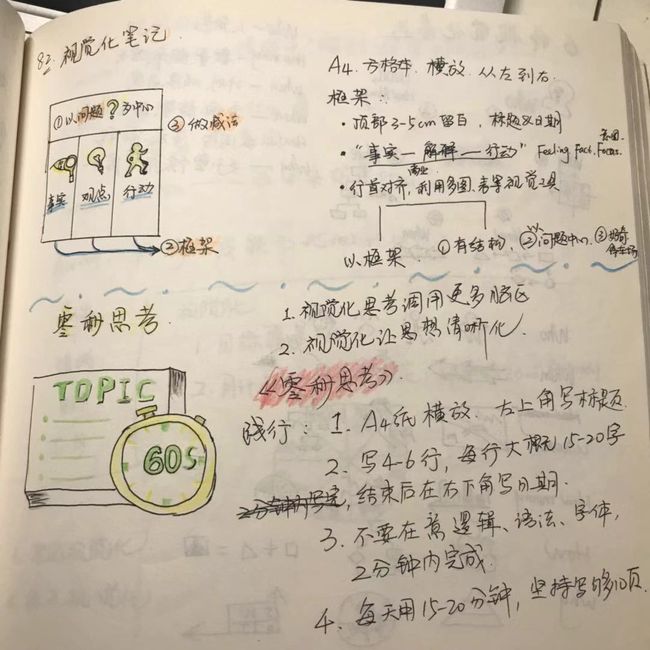 82. 视觉化笔记
①以问题?为中心
事实 观点 行动
③做减法
②框架
A4. 方格本. 横放. 从左到右.
框架:
·顶部3-5cm留白,标题及日期
·“事实—解释—行动” Feeling. Fact. Focus.
·行首对齐,利用多图、表景视觉工具
以框架 ①有结构,②以问题中心,③
零秒思考.
1. 视觉化思考调用更多脑区
2. 视觉化让思想清晰化.
《零秒思考》.
TOPIC
60S
践行:1. A4纸横放. 右上角写标题.
2. 写4-6行,每行大概15-20字
2分钟内写完,结束后在右下角写日期.
3. 不要在意逻辑、语法、字体,
2分钟内完成.
4. 每天用15-20分钟,坚持写够10页.